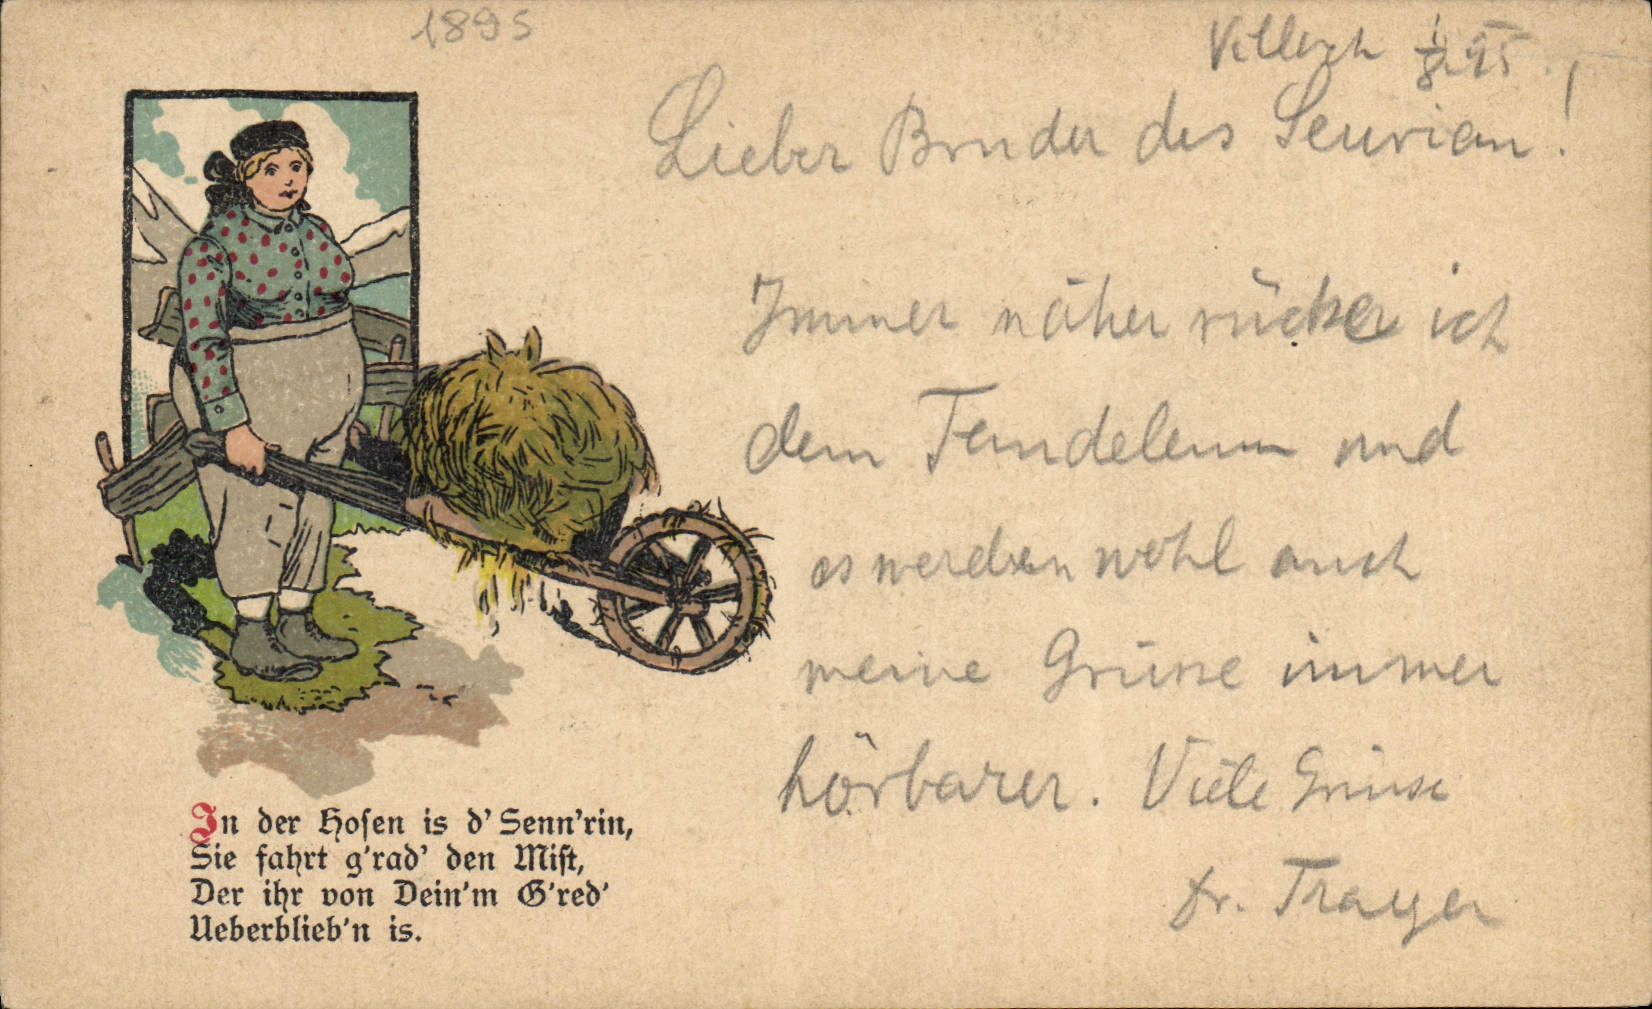 1895
Villach 1/8 95.
Lieber Bruder des !
Immer näher rücker ich
dem und
es werden wohl auch
meine Grüsse immer
hörbarer. Viele Grüsse
Fr. Trayer
In der Hosen is d' Senn'rin,
Sie fahrt g'rad' den Mist,
Der ihr von Dein'm G'red'
Ueberblieb'n is.